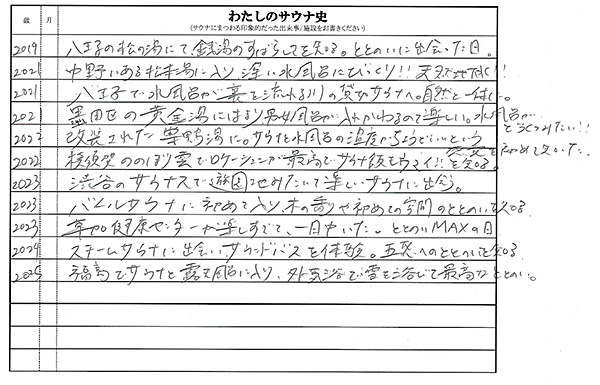 わたしのサウナ史
(サウナにまつわる印象的だった出来事/施設をお書きください)
歳 月
2019 八王子の松の湯にて銭湯のすばらしさを知る。ととのいに出会った日。
2021 中野にある松本湯に入り深い水風呂にびっくり!! 天然地
2021 八王子で水風呂が裏を流れる川の サウナへ。自然と一体に。
202 墨田区の黄金湯にはまり男女風呂が入れかわるので楽しい。水風呂が
どうくつみたい!!
2022 改装された巣鴨湯に。サウナと水風呂の温度がちょうどいいという
を初めて知った。
2022 横須賀ののぼり雲でロケーションが最高でサウナ飯もウマイ!!を知る。
2023 渋谷のサウナスで遊園地みたいで楽しいサウナに出会う。
2023 バレルサウナに初めて入り木の香りや初めての空間のととのいを知る
2023 草加健康センターが楽しすぎて、一日中いた。ととのいMAXの日
2024 スチームサウナに出会いサウンドバスを体験。五感へのととのいを知る
2025 福島でサウナと露天風呂に入り、外気浴で雪を浴びて最高なととのい。